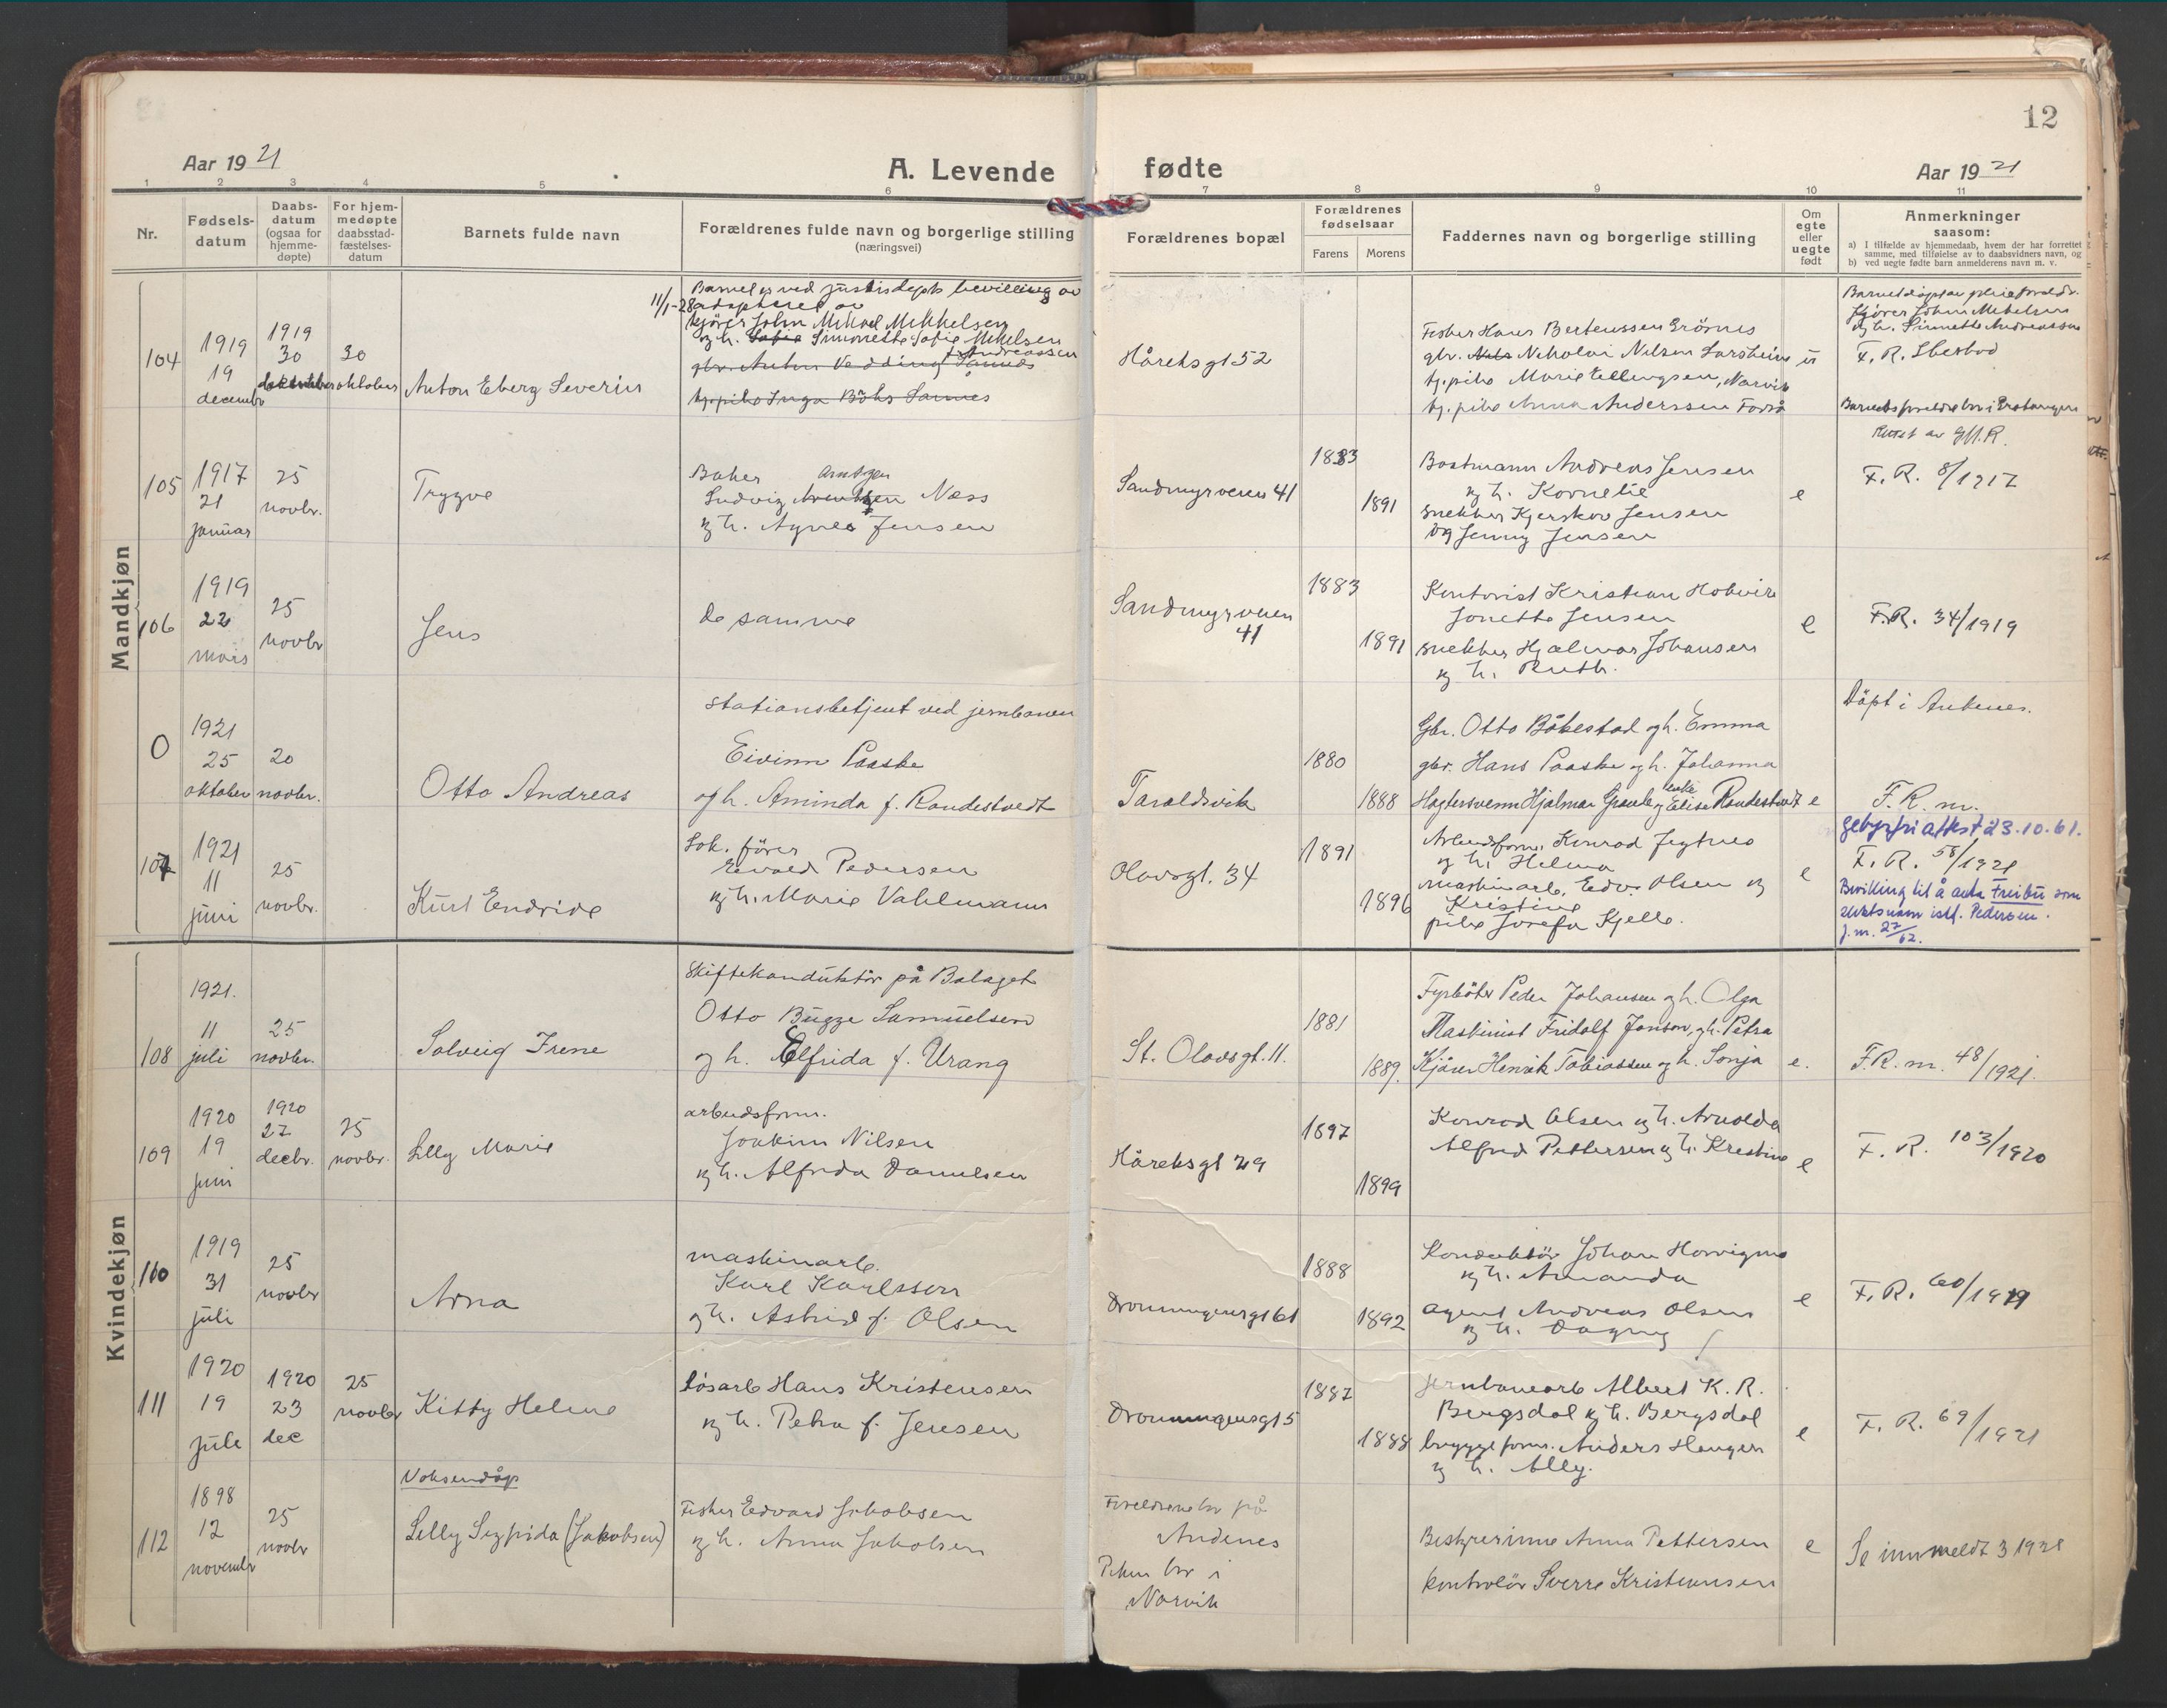 12
Aar 1921
A. Levende fødte
Aar 1921
1 2 3 4 5 6 7 8 9 10 11
Nr.
Fødsels-
datum
Daabs-
datum
(ogsaa for
hjemme-
døpte)
For hjem-
medøpte
daabsstad-
fæstelses-
datum
Barnets fulde navn
Forældrenes fulde navn og borgerlige stilling
(næringsvei)
Forældrenes bopæl
Forældrenes
fødselsaar
Farens
Morens
Faddernes navn og borgerlige stilling
Om
egte
eller
uegte
født
Anmerkninger
saasom:
a) I tilfælde av hjemmedaab, hvem der har forrettet
samme, med tilføielse av to daabsvidners navn, og
b) ved uegte fødte barn anmelderens navn m. v.
Mandkjøn
104
1919
19
decembr
1919
30
30
oktober
Anton Eberg Severin
Barnet er ved justisdepts bevilling av
11/1-28 adopteret av
kjører Johan Mikael Mikkelsen
og h. Sofie Simonette Sofie Mikelsen
f. Andreassen
gbr. Anton Vedding Sannes
tj.pike Inga Böhs Sannes
Håreksgt 52
Fisker Hans Bertenssen Grövnes
gbr. Nils Nikolai Nilsen
tj.pike Marie Ellingsen, Narvik
tj.pike Anna Anderssen Forså
u
Barnet döpt av pleieforeldr.
kjører Johan Mikelsen
og h. Simonette Andreassen
F. R. Ibestad
Barnets foreldre bor i Gratangen
105
1917
21
januar
25
novbr.
Trygve
Baker Arntzen
Ludvig Arentzen Næss
og h. Agnes Jensen
Sandmyrveien 41
1883
1891
Bostmann Andreas Jensen
og h. Kornelie
snekker Kjerskov Jensen
og Jenny Jensen
e
F. R. 8/1917
106
1919
22
mars
25
novbr
Jens
de samme
Sandmyrveien
41
1883
1891
Kontorist Kristian Hokvik
Jonette Jensen
snekker Hjalmar Johansen
og h. Ruth.
e
F.R. 34/1919
0
1921
25
oktober
20
novbr.
Otto Andreas
Stationsbetjent ved jernbanen
Eivinn Paaske
og h. Aminda f. Randestvedt
Taraldsvik
1880
1888
Gbr. Otto Båkestad og h. Emma
gbr. Hans Paaske og h. Johanna
enke
Hjalmar og Elise Randestvedt
e
Döpt i Ankenes.
F. R. m.
107
1921
11
juni
25
novbr.
Kurt Endride
Lok. förer
Edvard Pedersen
og h. Marie Vahlmann
Olavsgt. 34
1891
1896
Arbeidsform. Konrad Jegtnes
og h. Helma
maskinarb. Edv. Olsen og
Kristine
pike Josefa Kjelle.
e
gebyrfri attest 23.10.61.
F. R. 58/1921
Bevilling til å anta Freibu som
slektsnavn istf. Pedersen.
j.m. 27/62.
Kvindekjøn
108
1921.
11
juli
25
novbr.
Solveig Irene
Skiftekonduktör på Bolaget
Otto Bugge Samuelsen
og h. Elfrida f. Urang
St. Olavsgt. 11.
1881
1889.
Fyrböter Peder Johansen og h. Olga
Maskinist Fridolf Janson, og h. Petra
Kjører Henrik Tobiassen og h. Sonja
e.
F.R. m. 48/1921.
109
1920
19
juni
1920
27
decbr.
25
novbr.
Lilly Marie
arbeidsform.
Joakim Nilsen
og h. Alfrida Danielsen
Håreksgt 29
1897
1899
Konrad Olsen og h. Arnolda
Alfred Pettersen og h. Krestine
e
F. R. 103/1920
110
1919
31
juli
25
novbr
Arna
maskinarb.
Karl Karlsson
og h. Astrid f. Olsen
Dronningensgt 61
1888
1892
Konduktör Johan
og h. Amanda
agent Andreas Olsen
og h. Dagny
e
F. R. 60/1919
111
1920
19
jule
1920
23
dec
25
novbr
Kitty Helene
Lösarb Hans Kristensen
og h. Petra f. Jensen
Dronningensgt 5
1887
1888
jernbanearb Albert K. R.
Bergsdal og h. Bergsdal
byggeform. Anders Haugen
og h. Ally.
e
F. R. 69/1921
112
1898
12
novembr
25
novbr
Voksendåp
Lilly Sigfrida (Jakobsen)
Fisker Edvard Jakobsen
og h. Anna Jakobsen
Foreldrene bor på
Andenes
Piken bor i
Narvik
Bestyrerinne Anna Pettersen
Kontrolör Sverre Kristiansen
e
Se innmeldt 3 1921